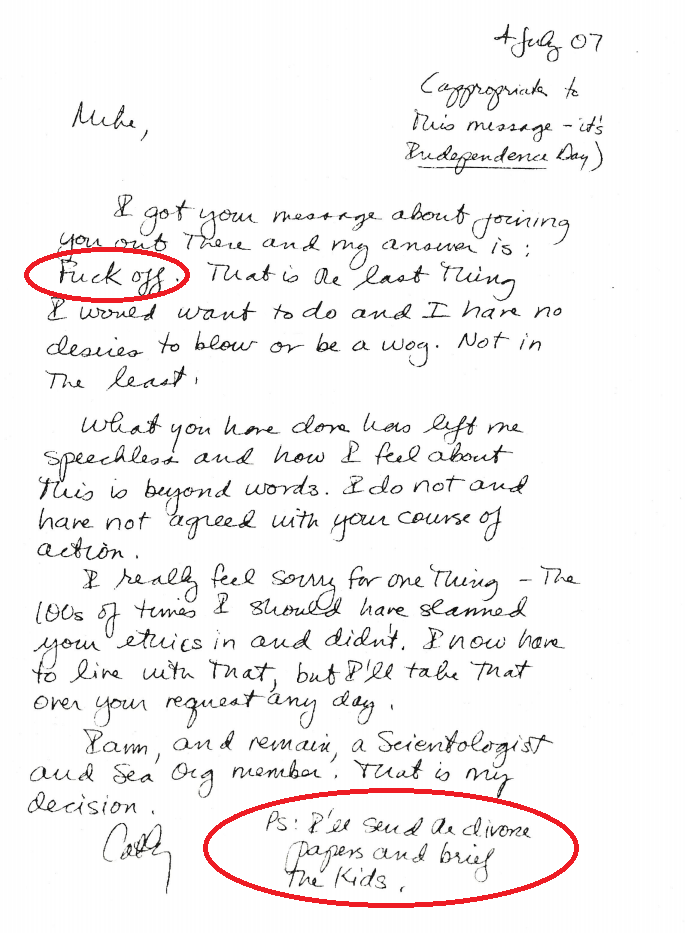 4 July 07
(appropriate to
this message - it's
Independence Day)
Mike,
I got your message about joining
you out there and my answer is:
Fuck off. That is the last thing
I would want to do and I have no
desires to blow or be a wog. Not in
the least.
What you have done has left me
speechless and how I feel about
this is beyond words. I do not and
have not agreed with your course of
action.
I really feel sorry for one thing - The
100s of times I should have slammed
your ethics in and didn't. I now have
to live with that, but I'll take that
over your request any day.
I am, and remain, a Scientologist
and Sea Org member. That is my
decision.
Cathy
Ps: I'll send de divorce
papers and brief
the kids.